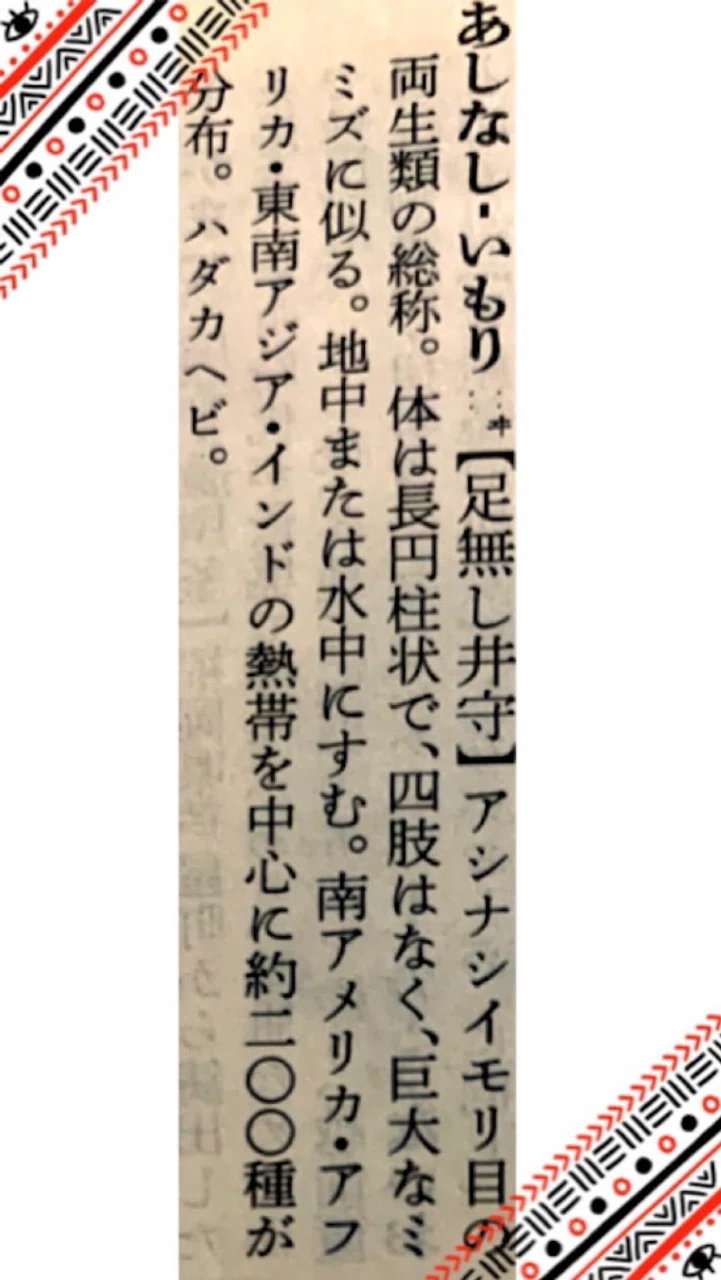 あしなし-いもり‥ヰ【足無し井守】アシナシイモリ目の
両生類の総称。体は長円柱状で、四肢はなく、巨大なミ
ミズに似る。地中または水中にすむ。南アメリカ・アフ
リカ・東南アジア・インドの熱帯を中心に約二〇〇種が
分布。ハダカヘビ。